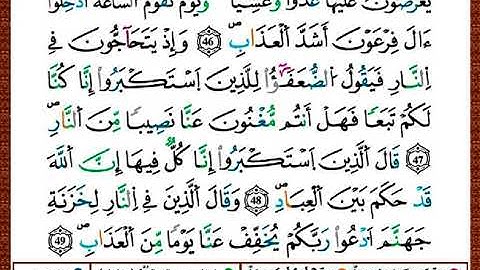 يُعْرَضُونَ عَلَيْهَا غُدُوًّا وَعَشِيًّا وَيَوْمَ تَقُومُ السَّاعَةُ أَدْخِلُوا
ءَالَ فِرْعَوْنَ أَشَدَّ ٱلْعَذَابِ ۖ 46 وَإِذْ يَتَحَآجُّونَ فِي
اِ۬لنَّارِ فَيَقُولُ اُ۬لضُّعَفَٰٓؤُاْ لِلَّذِينَ اَ۪سْتَكْبَرُوٓاْ إِنَّا كُنَّا
لَكُمْ تَبَعاٗ فَهَلْ أَنتُم مُّغْنُونَ عَنَّا نَصِيباٗ مِّنَ اَ۬لنَّارِۖ
47 قَالَ اَ۬لَّذِينَ اَ۪سْتَكْبَرُوٓاْ إِنَّا كُلّٞ فِيهَآ إِنَّ اَ۬للَّهَ
قَدْ حَكَمَ بَيْنَ اَ۬لْعِبَادِۖ 48 وَقَالَ اَ۬لَّذِينَ فِي اِ۬لنَّارِ لِخَزَنَةِ
جَهَنَّمَ اَ۟دْعُواْ رَبَّكُمْ يُخَفِّفْ عَنَّا يَوْماٗ مِّنَ اَ۬لْعَذَابِۖ 49